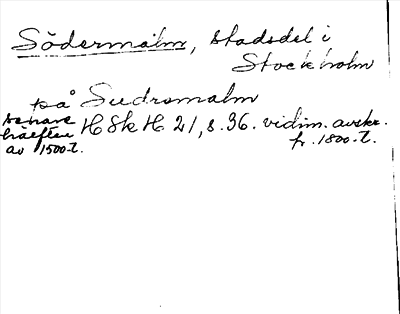 Södermalm, stadsdel i
Stockholm
på Sudromalm
senare hälften av 1500-t.
HSkH 21, s. 36. vidim. avskr.
fr. 1800-t.